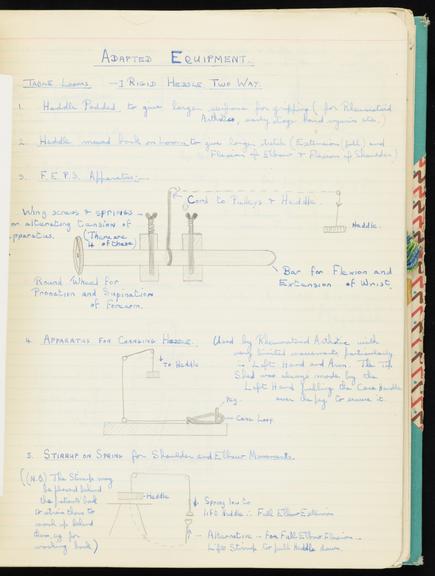 ADAPTED EQUIPMENT.
TABLE LOOMS. — I RIGID HEDDLE TWO WAY.
1. Heddle Padded, to give larger surface for gripping (for Rheumatoid
Arthritis, early stage hand injuries etc.)
2. Heddle moved back on looms to give longer stretch (Extension (full) and
Flexion of Elbow & Flexion of Shoulder)
3. F.E.P.S. Apparatus:-
Cord to Pulleys & Heddle.
Wing screws & SPRINGS
on alternating tension of
apparatus. (There are
4 of these)
Heddle.
Round Wheel for
Pronation and Supination
of forearm.
Bar for Flexion and
Extension of Wrist.
4. APPARATUS FOR CHANGING HEDDLE.
Used by Rheumatoid Arthritic with
very limited movements particularly
in Left Hand and Arm. The
Shed was always made by the
Left Hand pulling the Cane Handle
over the peg to secure it.
To Heddle
Peg.
Cane Loop.
5. STIRRUP ON SPRING for Shoulder and Elbow Movements.
((N.B) The Stirrup may
be placed behind
the patient's back
to
work up behind
them, eg for
working back)
Heddle
Spring low to
lift Heddle :- Full Elbow Extension
Alternative - For Full Elbow Flexion -
Lift Stirrup to pull Heddle down.